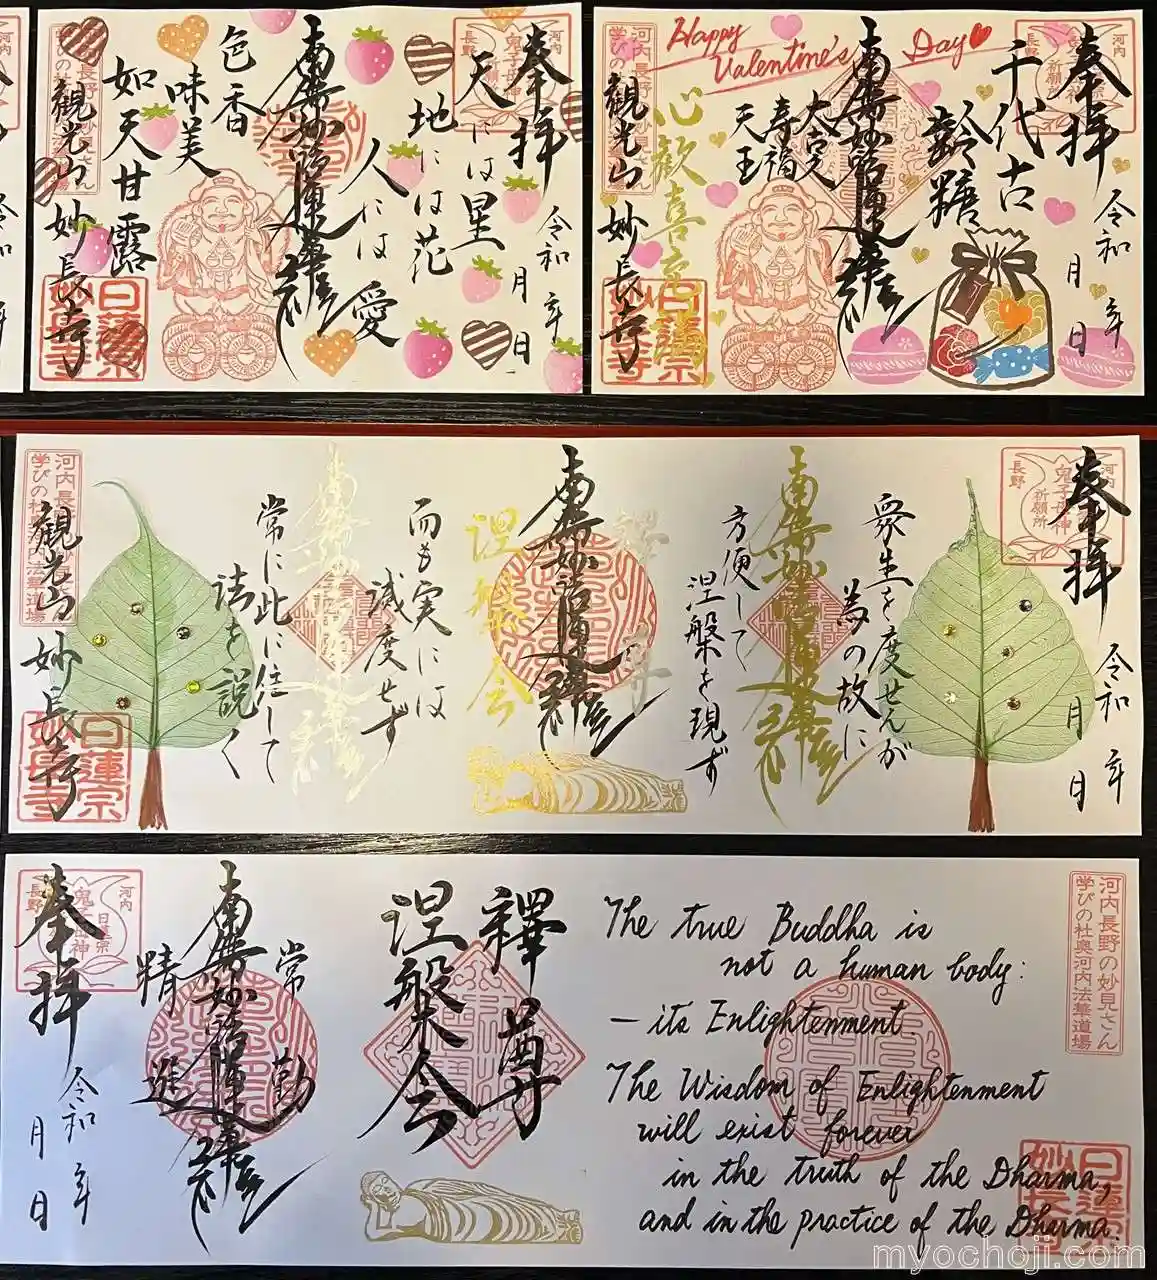 奉拝
天には星
地には花
人には愛
南無妙法蓮華経
色香
味美
如天甘露
観光山 妙長寺
令和 年
月 日
河内
長野
日蓮宗
妙長寺
Happy
Valentine's Day
奉拝
千代古
齢糖
南無妙法蓮華経
大吉天
寿福
天王
心歓喜
観光山 妙長寺
令和 年
月 日
河内
長野
鬼子母神
祈願所
日蓮宗
妙長寺
奉拝
衆生を度せんが
為の故に
南無妙法蓮華経
方便して
涅槃を現ず
釋尊
南無妙法蓮華経
涅槃会
而も実には
滅度せず
南無妙法蓮華経
常に此に住して
法を説く
観光山 妙長寺
令和 年
月 日
河内
長野
鬼子母神
祈願所
日蓮宗
妙長寺
奉拝
令和 年
月 日
河内
長野
日蓮宗
常勤
南無妙法蓮華経
精進
釋尊
涅槃会
The true Buddha is
not a human body:
– its Enlightenment
The Wisdom of Enlightenment
will exist forever
in the truth of the Dharma,
and in the practice of the Dharma.
河内長野の妙見さん
学びの社奥河内法華道場
日蓮宗
妙長寺
myochoji.com